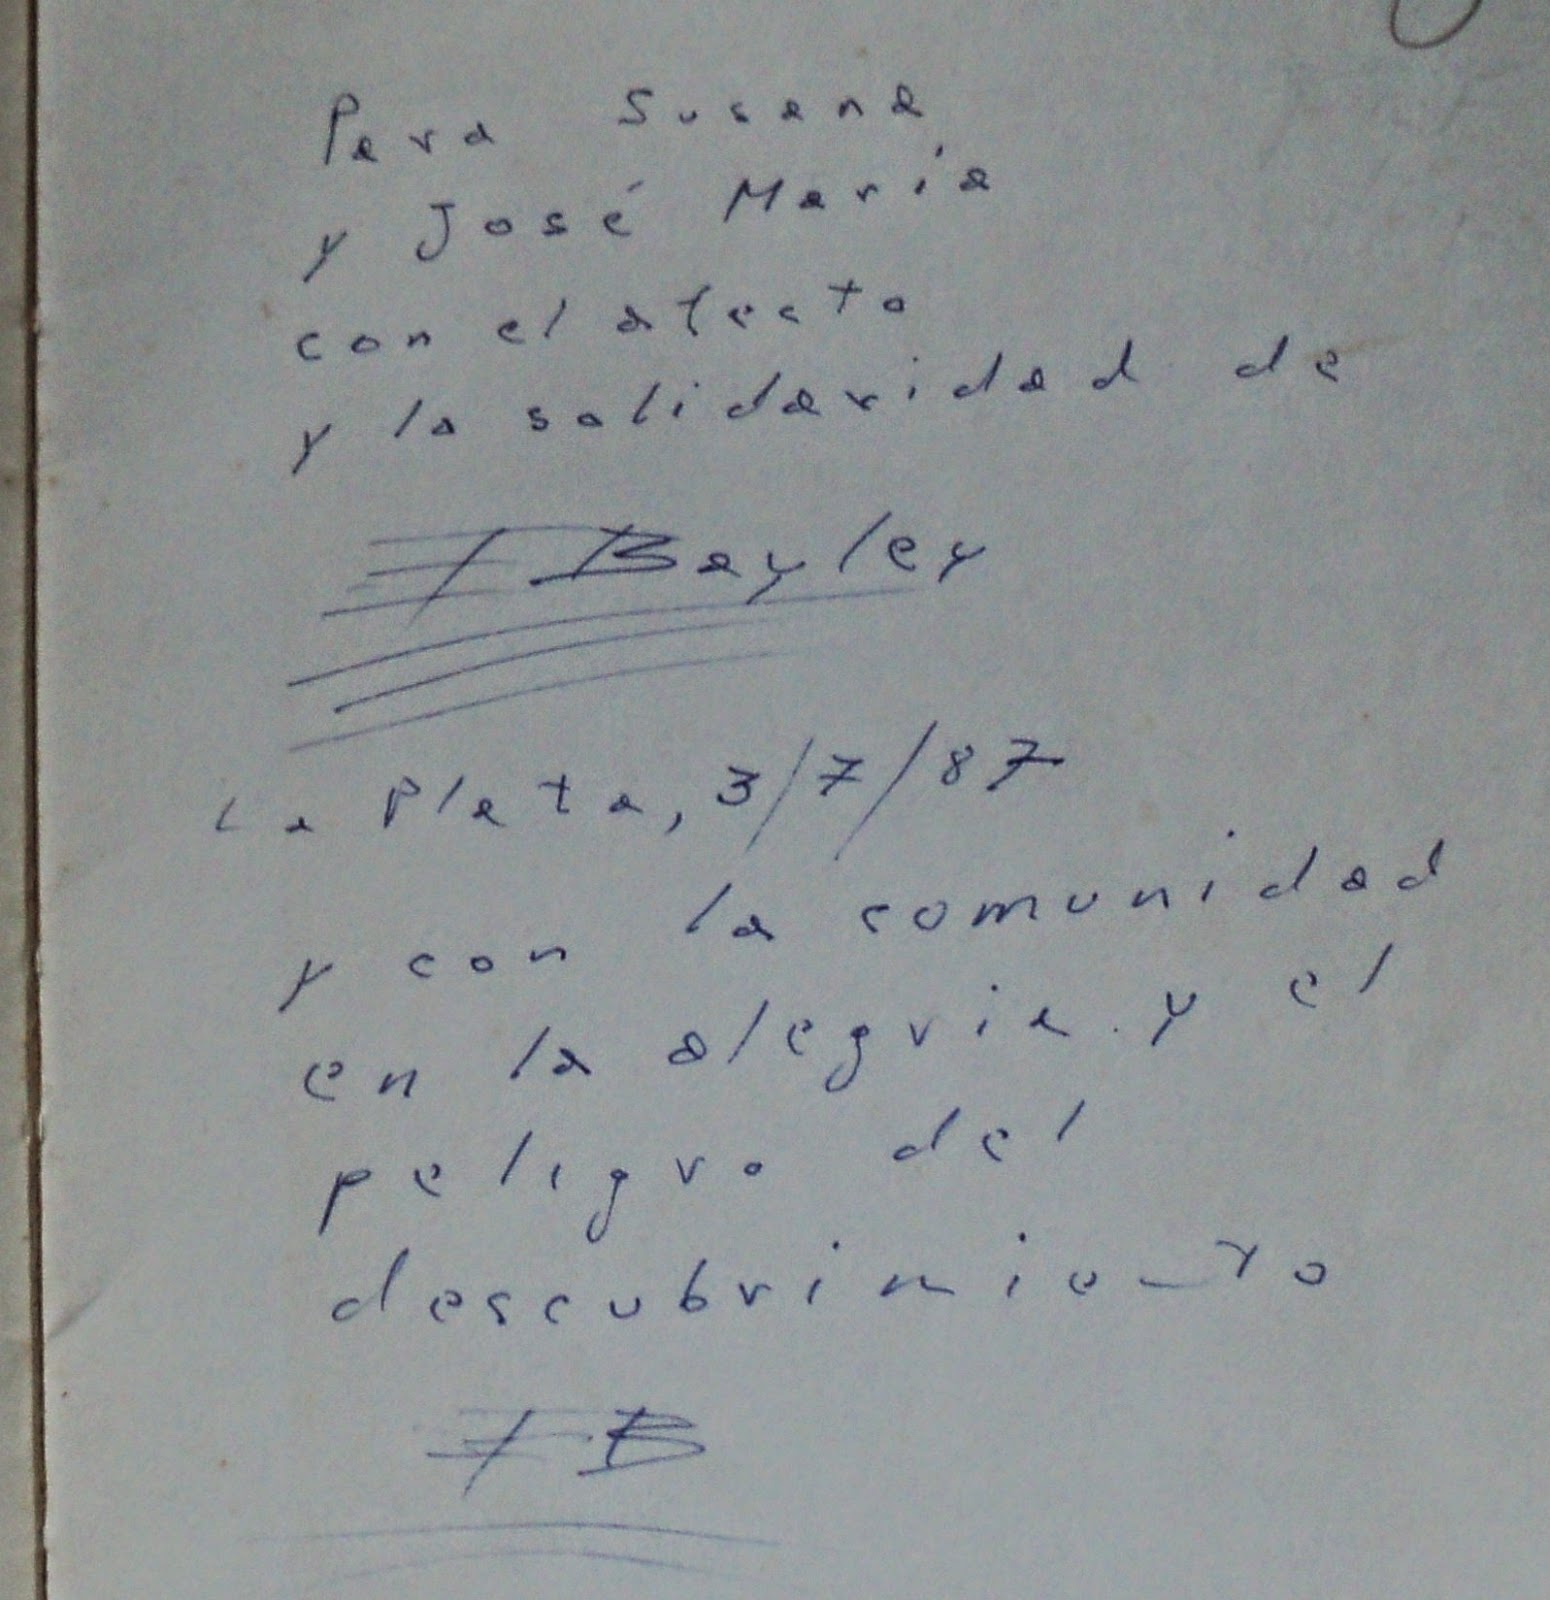 Para Susana
y José María
con el afecto
y la solidaridad de
E Bayley
La Plata, 3/7/87
y con la comunidad
en la alegria y el
peligro del
descubrimiento
E B